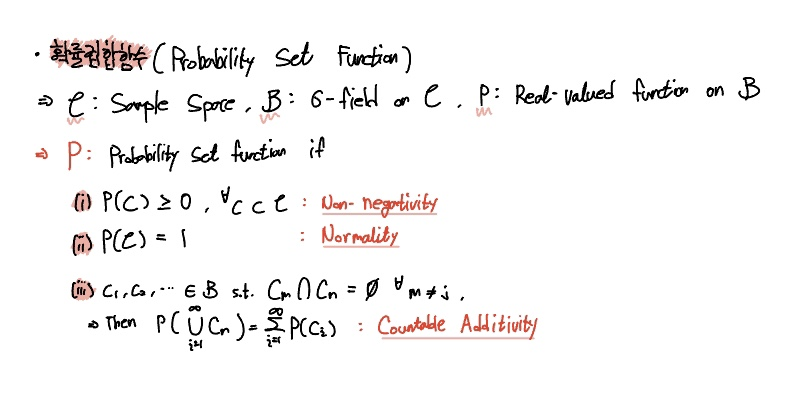 · 확률집합함수 (Probability Set Function)
⇒ 𝒞 : Sample Space, B : σ-field on 𝒞, P : Real-valued function on B
⇒ P : Probability set function if
(i) P(C) ≥ 0, ∀C ⊂ 𝒞 : Non-negativity
(ii) P(𝒞) = 1 : Normality
(iii) C₁, C₂, ⋯ ∈ B s.t. Cm ∩ Cn = ∅ ∀m ≠ j,
⇒ Then P(⋃_{i=1}^{∞} Cn) = ∑_{i=1}^{∞} P(Ci) : Countable Additivity